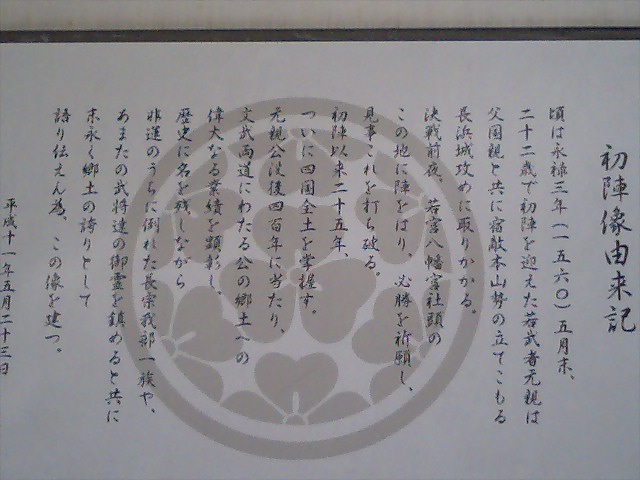 初陣像由来記
頃は永禄三年(一五六〇)五月末、
二十二歳で初陣を迎えた若武者元親は
父国親と共に宿敵本山勢の立てこもる
長浜城攻めに取りかかる。
決戦前夜、若宮八幡宮社頭の
この地に陣をはり、必勝を祈願し、
見事これを打ち破る。
初陣以来二十五年、
ついに四国全土を掌握す。
元親公没後四百年に当たり、
文武両道にわたる公の郷土への
偉大なる業績を顕彰し、
歴史に名を残しながら
非運のうちに倒れた長宗我部一族や、
あまたの武将達の御霊を鎮めると共に
末永く郷土の誇りとして
語り伝えん為、この像を建つ。
平成十一年五月二十三日